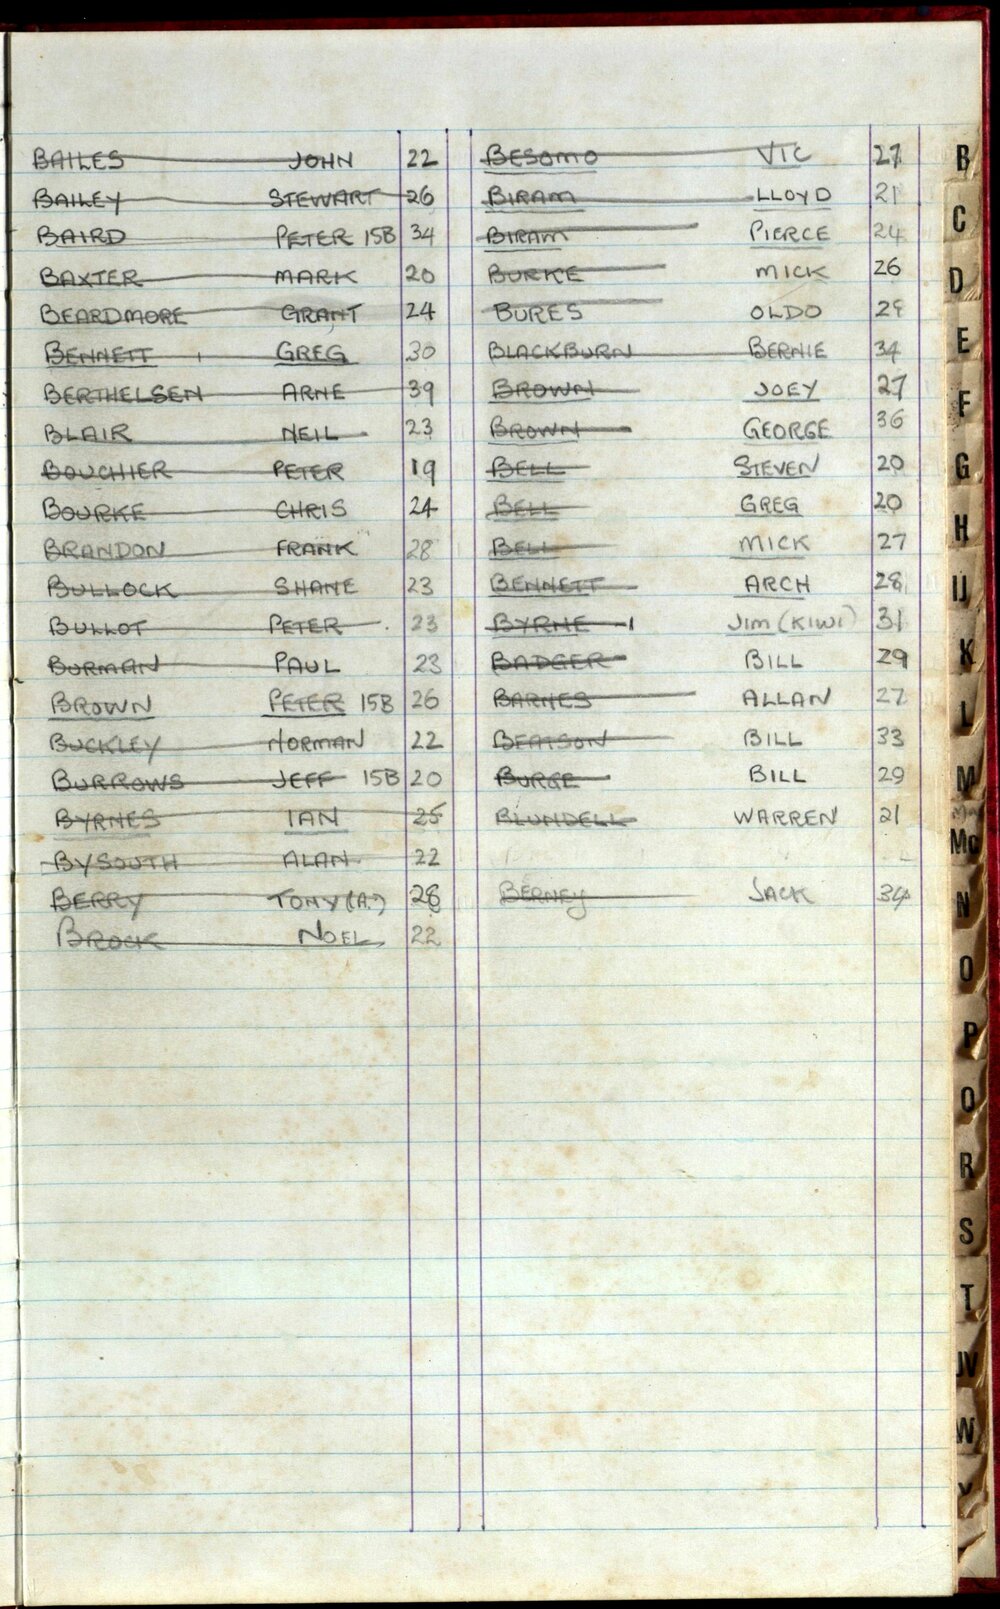 BAILES JOHN 22
BAILEY STEWART 26
BAIRD PETER 15B 34
BAXTER MARK 20
BEARDMORE GRANT 24
BENNETT GREG 30
BERTHELSEN ARNE 39
BLAIR NEIL 23
BOUCHIER PETER 19
BOURKE CHRIS 24
BRANDON FRANK 28
BULLOCK SHANE 23
BULLOT PETER 23
BURMAN PAUL 23
BROWN PETER 15B 26
BUCKLEY NORMAN 22
BURROWS JEFF 15B 20
BYRNES IAN 25
BYSOUTH ALAN 22
BERRY TONY (A.) 28
BROCK NOEL 22
BESOMO VIC 27
BIRAM LLOYD 21
BIRAM PIERCE 24
BURKE MICK 26
BURES OLDO
BLACKBURN BERNIE 34
BROWN JOEY 27
BROWN GEORGE 36
BELL STEVEN 20
BELL GREG 20
BELL MICK 27
BENNETT ARCH 28
BYRNE JIM (KIWI) 31
BADGER BILL 29
BARNES ALLAN 27
BEATSON BILL 33
BURGE BILL 29
BLUNDELL WARREN 21
BERNEY JACK 34
B
C
D
E
F
G
H
IJ
K
L
M
Mc
N
O
P
Q
R
S
T
UV
W
Y